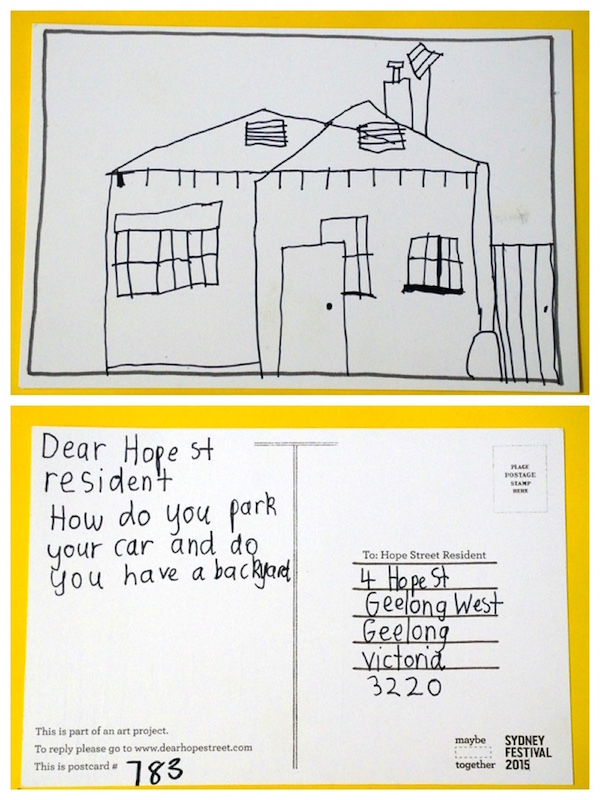 Dear Hope st
resident
How do you park
your car and do
you have a backyard
This is part of an art project.
To reply please go to www.dearhopestreet.com
This is postcard # 783
PLACE
POSTAGE
STAMP
HERE
To: Hope Street Resident
4 Hope St
Geelong West
Geelong
Victoria
3220
maybe
together
SYDNEY
FESTIVAL
2015